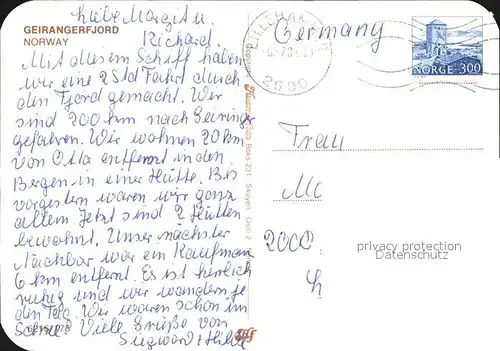 GEIRANGERFJORD
NORWAY
Liebe Margit u.
Richard.
Mit diesem Schiff haben
wir eine 2 Std Fahrt durch
den Fjord gemacht. Wir
sind 200 km nach Geiranger
gefahren. Wir wohnen 20 km
von Otta entfernt in den
Bergen in einer Hütte. Bis
vorgestern waren wir ganz
allein Jetzt sind 2 Hütten
bewohnt. Unser nächster
Nachbar war ein Kaufmann
6 km entfernt. Es ist herrlich
ruhig und wir wandern je
den Tag. Wir waren schon im
Schnee! Viele Grüße von
Siegward + Hilde
Boks 231 Skøyen Oslo 2
LILLEHAMMER
2600
NORGE 300
Germany
Frau
2000
privacy protection
Datenschutz